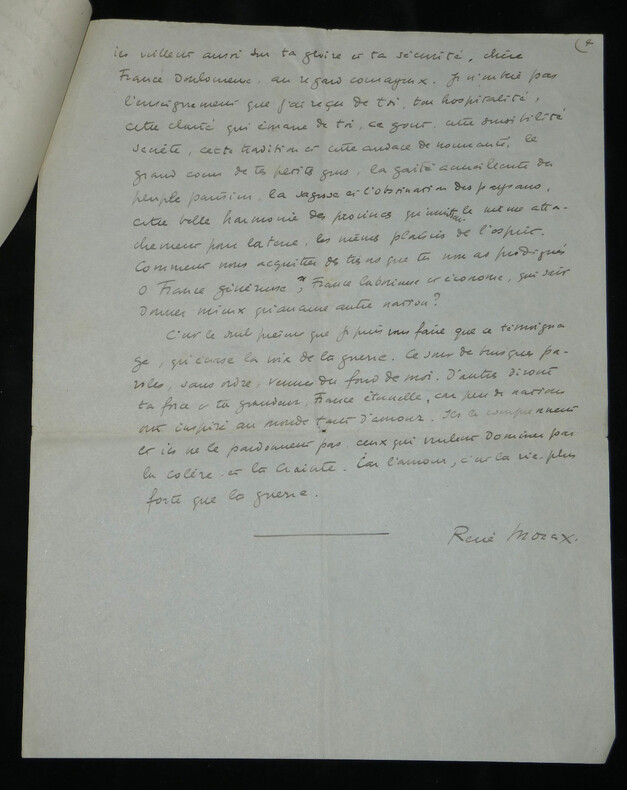 (4
ils veillent aussi sur ta gloire et ta sécurité, chère
France douloureuse au regard courageux. Je n'oublie pas
l'enseignement que j'ai reçu de toi, ton hospitalité,
cette clarté qui émane de toi, ce goût, cette sensibilité
secrète, cette tradition et cette audace de nouveauté, le
grand cœur de tes petits gens, la gaîté accueillante du
peuple parisien, la sagesse et l'obstination des paysans,
cette belle harmonie des provinces qu'unit le même atta-
chement pour la terre, les mêmes plaisirs de l'esprit.
Comment nous acquitter des trésors que tu nous as prodigués
O France généreuse, France laborieuse et économe, qui sais
donner mieux qu'aucune autre nation?
C'est le seul présent que je puis vous faire que ce témoigna-
ge, qu'écrase la voix de la guerre. Ce sont de brusques pa-
roles, sans ordre, venues du fond de moi. D'autres diront
ta force et ta grandeur, France éternelle, car peu de nations
ont inspiré au monde tant d'amour. Ils le comprennent
et ils ne le pardonnent pas, ceux qui veulent dominer par
la colère et la crainte. Car l'amour, c'est la vie, plus
forte que la guerre.
René Morax.